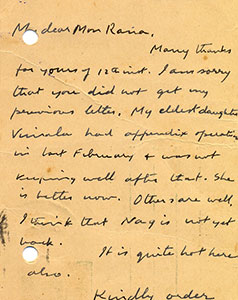 My dear Mon Rana,
Many thanks
for yours of 12th inst. I am sorry
that you did not get my
previous letter. My eldest daughter
Vimala had appendix operation
in last February & was not
keeping well after that. She
is better now. Others are well.
I think that Nag is not yet
back.
It is quite hot here
also.
Kindly order